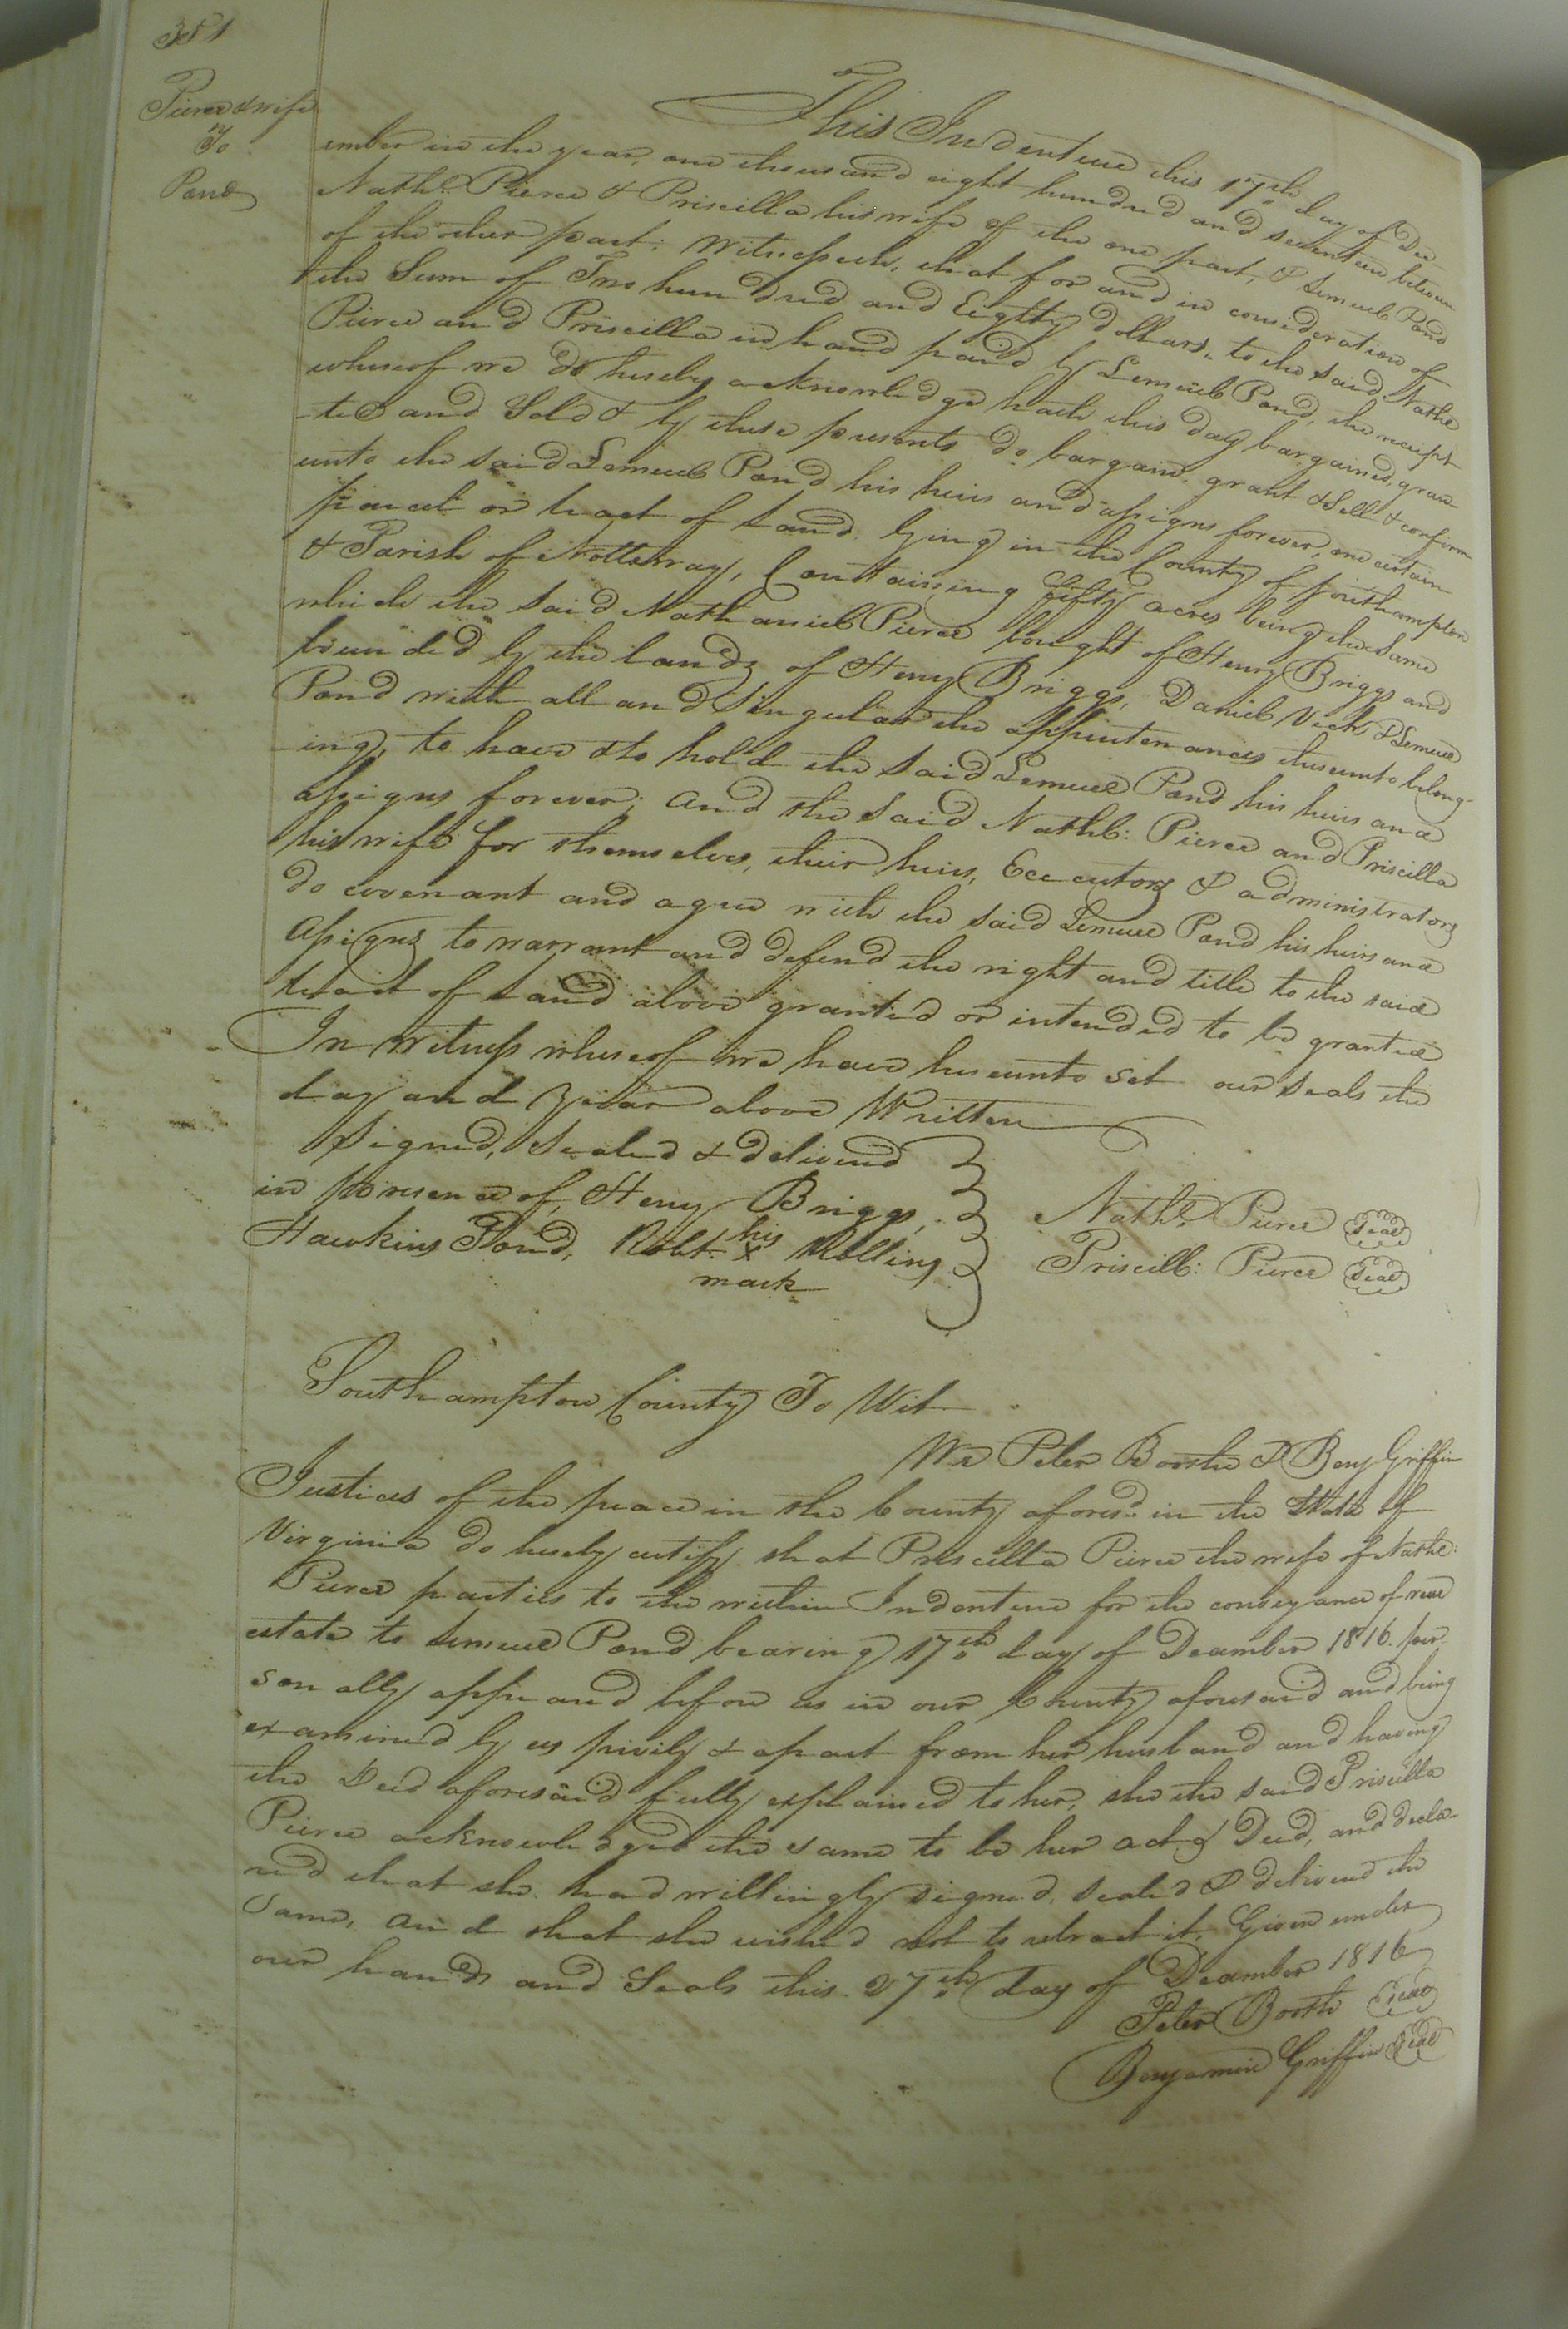 351
Pierce & wife
To
Pond
This Indenture this 17th day of Dec-
ember in the year, one thousand eight hundred and seventeen between
Nathl. Pierce & Priscilla his wife of the one part, & Lemuel Pond
of the other part; Witnesseth, that for and in consideration of
the Sum of Two hundred and Eighty dollars, to the said Nathl
Pierce and Priscilla in hand paid by Lemuel Pond, the receipt
whereof we do hereby acknowledge hath this day bargained, gran-
ted and Sold & by these presents do bargain, grant & Sell & confirm
unto the said Lemuel Pond his heirs and assigns forever, one certain
parcel or tract of Land lying in the County of Southampton
& Parish of Nottoway, Containing fifty acres being the same
which the said Nathaniel Pierce bought of Henry Briggs and
bounded by the lands of Henry Briggs, Daniel Vick & Lemuel
Pond with all and Singular the appurtenances thereunto belong-
ing, to have & to hold the said Lemuel Pond his heirs and
assigns forever; and the said Nathl: Pierce and Priscilla
his wife for themselves, their heirs, Executors & administrators
do covenant and agree with the said Lemuel Pond his heirs and
assigns to warrant and defend the right and title to the said
tract of Land above granted or intended to be granted
In Witness whereof we have hereunto set our seals the
day and year above Written
Signed, Sealed & delivered
in presence of, Henry Briggs,
Hawkins Pond, Robt. his x Rolling
mark
Nathl. Pierce Seal
Priscill: Pierce Seal
Southampton County To Wit
We Peter Booth & Benj Griffin
Justices of the peace in the County aforesd. in the State of
Virginia do hereby certify that Priscilla Pierce the wife of Nathl:
Pierce parties to the within Indenture for the conveyance of real
estate to Lemuel Pond bearing 17th day of December 1816. per-
sonally appeared before us in our County aforesaid and being
examined by us privily & apart from her husband and having
the Deed aforesaid fully explained to her, she the said Priscilla
Pierce acknowledged the same to be her act & Deed, and decla-
red that she had willingly signed, sealed & delivered the
same, and that she wished not to retract it, Given under
our hands and Seals this 27th day of December 1816
Peter Booth Seal
Benjamin Griffin Seal